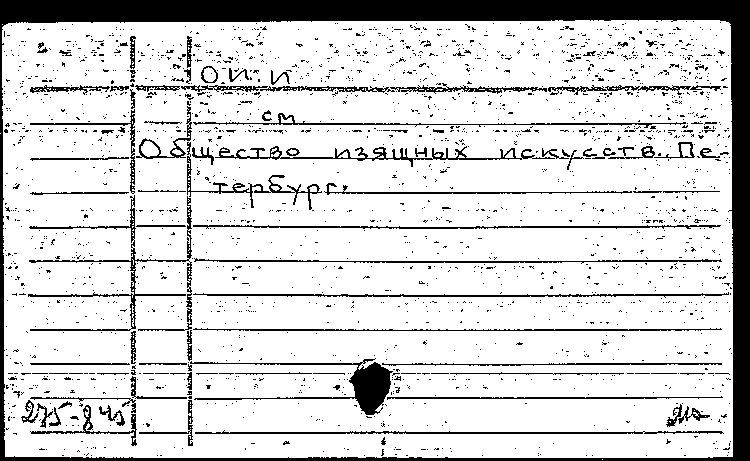 ОИИ
см.
Общество изящных искусств. Пе-
тербург.
275-845